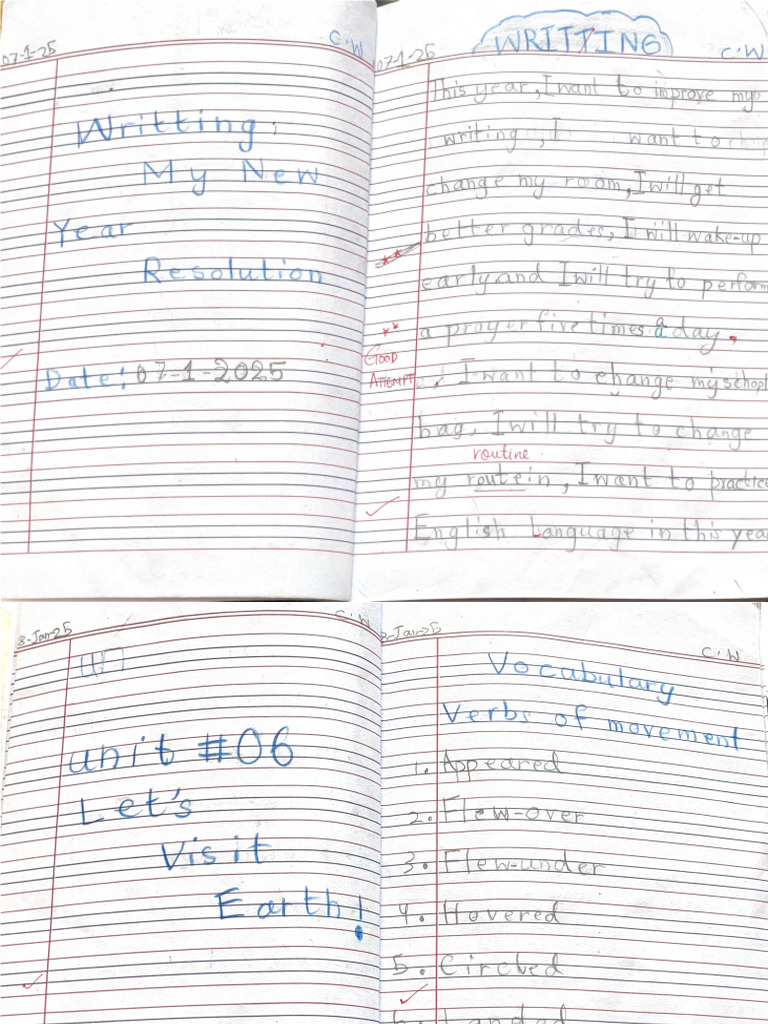 07-1-25
C.W
Writting:
My New
Year
Resolution
Date: 07-1-2025
07-1-25
WRITTING
C.W
This year, I want to improve my
writing, I want to
change my room, I will get
better grades, I will wake-up
early and I will try to perform
a prayer five times a day,
GOOD
ATTEMPT
I want to change my school
bag, I will try to change
routine
my routein, I want to practice
English Language in this year
8-Jan-25
C.W
unit #06
Let's
Visit
Earth!
8-Jan-25
C.W
Vocabulary
Verbs of movement
1. Appeared
2. Flew-over
3. Flew-under
4. Hovered
5. Circled
6. Landed